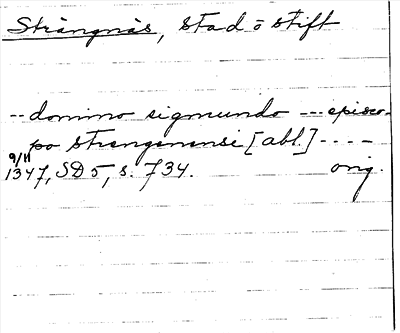 Strängnäs, stad o stift
-- domino sigmundo --- episco-
po strengenensi [abl.] ----
9/11
1347, SD 5, s. 734. orig.